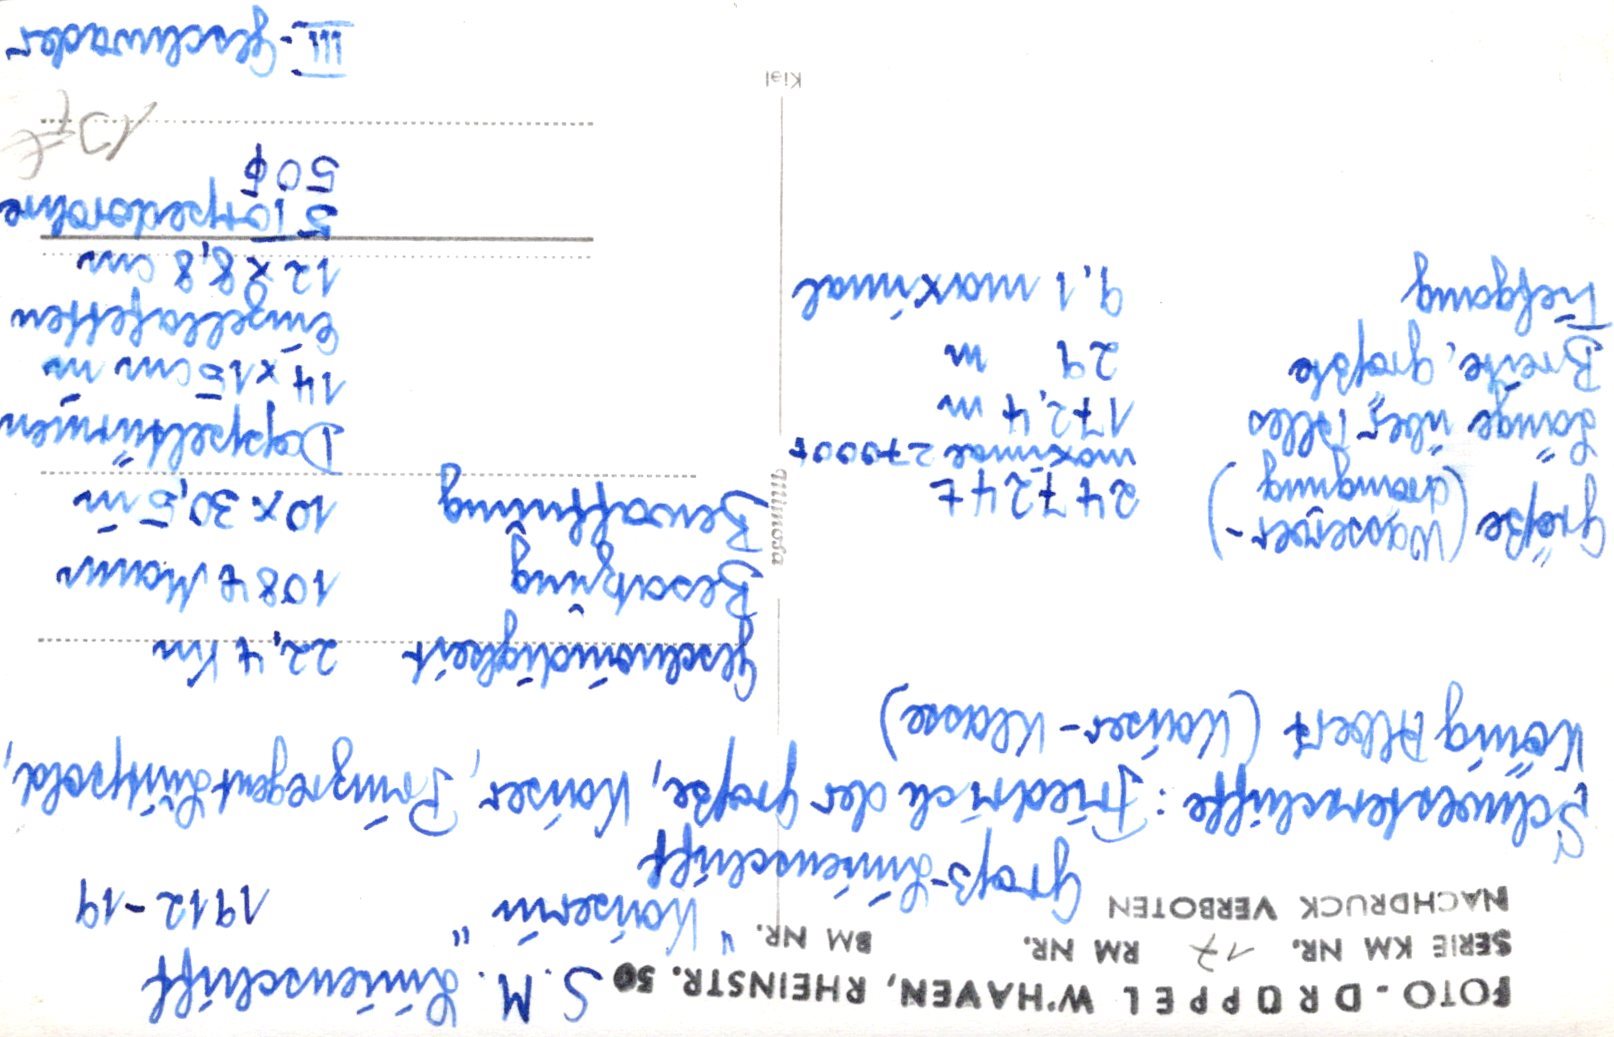 FOTO-DROPPEL W'HAVEN, RHEINSTR. 50
SERIE KM NR. 17 RM NR. BM NR.
NACHDRUCK VERBOTEN
S.M. Linienschiff
"Kaiserin" 1912-19
Groß-Linienschiff
Schwesterschiffe: Friedrich der Große, Kaiser, Prinzregent Luitpold,
König Albert (Kaiser-Klasse)
Größe (Wasserver-
drängung)
24724t
maximal 27000t
Länge über Alles 172,4 m
Breite, größte 29 m
Tiefgang 9,1 maximal
Geschwindigkeit 22,4 Kn
Besatzung 1084 Mann
Bewaffnung 10x 30,5 in
Doppeltürmen
14 x 15 cm in
Einzellafetten
12 x 8,8 cm
5 Torpedorohre
50 ϕ
III. Geschwader
mimosa
Kiel